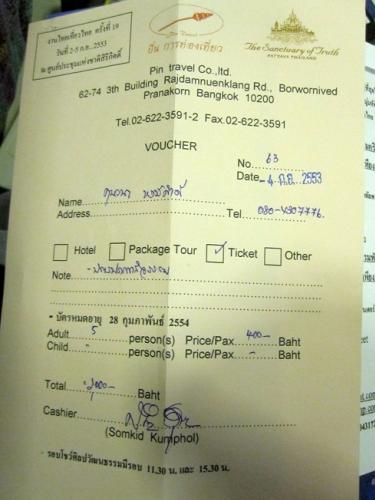 งานไทยเที่ยวไทย ครั้งที่ 19
วันที่ 2-5 ก.ย. 2553
ณ ศูนย์ประชุมแห่งชาติสิริกิติ์
Pin Travel
ปิ่น การท่องเที่ยว
The Sanctuary of Truth
PATTAYA THAILAND
Pin travel Co.,ltd.
62-74 3th Building Rajdamnuenklang Rd., Borwornived
Pranakorn Bangkok 10200
Tel.02-622-3591-2 Fax.02-622-3591
VOUCHER
No. 63
Date 4 ก.ย. 2553
Name
Address Tel
Hotel Package Tour Ticket Other
Note
- บัตรหมดอายุ 28 กุมภาพันธ์ 2554
Adult 5 person(s) Price/Pax 400- Baht
Child - person(s) Price/Pax - Baht
Total 2,000- Baht
Cashier
(Somkid Kumphol)
- รอบโชว์ศิลปวัฒนธรรมมีรอบ 11.30 น. และ 15.30 น.